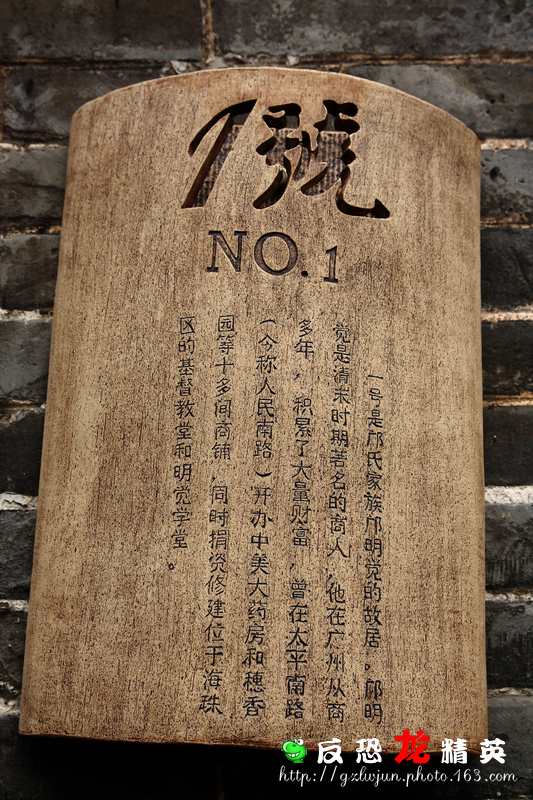 1號
NO.1
一号是邝氏家族邝明觉的故居。邝明
觉是清末时期著名的商人,他在广州从商
多年,积累了大量财富,曾在太平南路
(今称人民南路)开办中美大药房和穗香
园等十多间商铺,同时捐资修建位于海珠
区的基督教堂和明觉学堂。
反恐龙精英
http://gzlwjun.photo.163.com